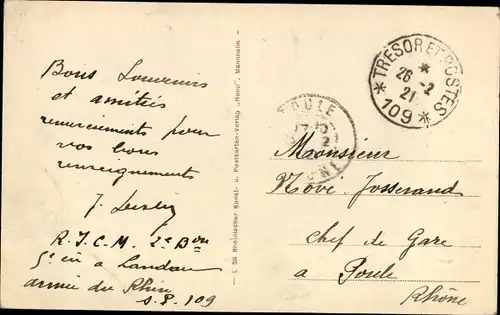 Bons Souvenirs
et amitiés
remerciements pour
vos bons
renseignements
J.
R.I.C.M. 2e Bon
5e Cie a Landau
armée du Rhin
S.P. 109
— L 59 Rheinischer Kunst- u. Postkarten-Verlag „Hepp", Mannheim —
POULE
RHONE
* TRESOR ET POSTES *
*
26 -2
21
109
Monsieur
Nové Josserand
chef de Gare
a Poule
Rhône